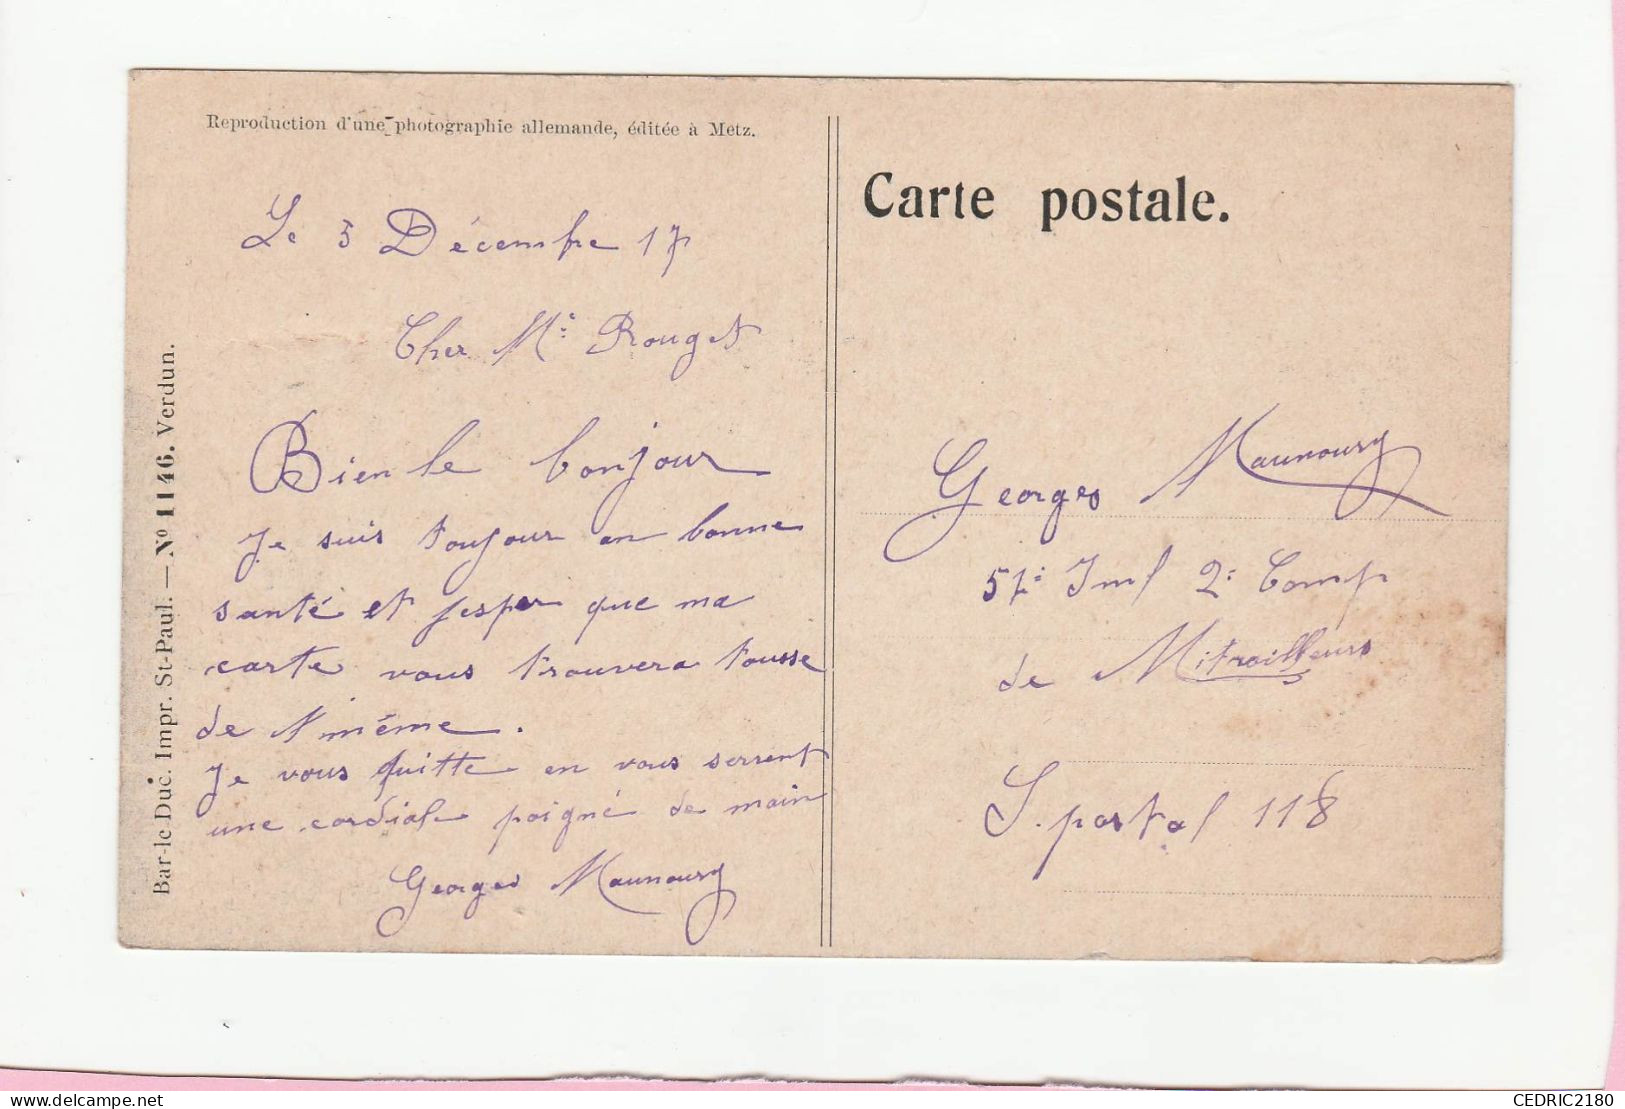 Reproduction d'une photographie allemande, éditée à Metz.
Le 3 Décembre 17
Cher Mr Rouget
Bien le bonjour
Je suis toujour en bonne
santé et jesper que ma
carte vous trouvera tousse
de même.
Je vous quitte en vous serrent
une cordiale poigné de main
Georges Maunoury
Bar-le-Duc. Impr. St-Paul. — No 1146. Verdun.
Carte postale.
Georges Maunoury
57e Inf 2e Comp
de Mitrailleurs
S. postal 118
delcampe.net
CEDRIC2180